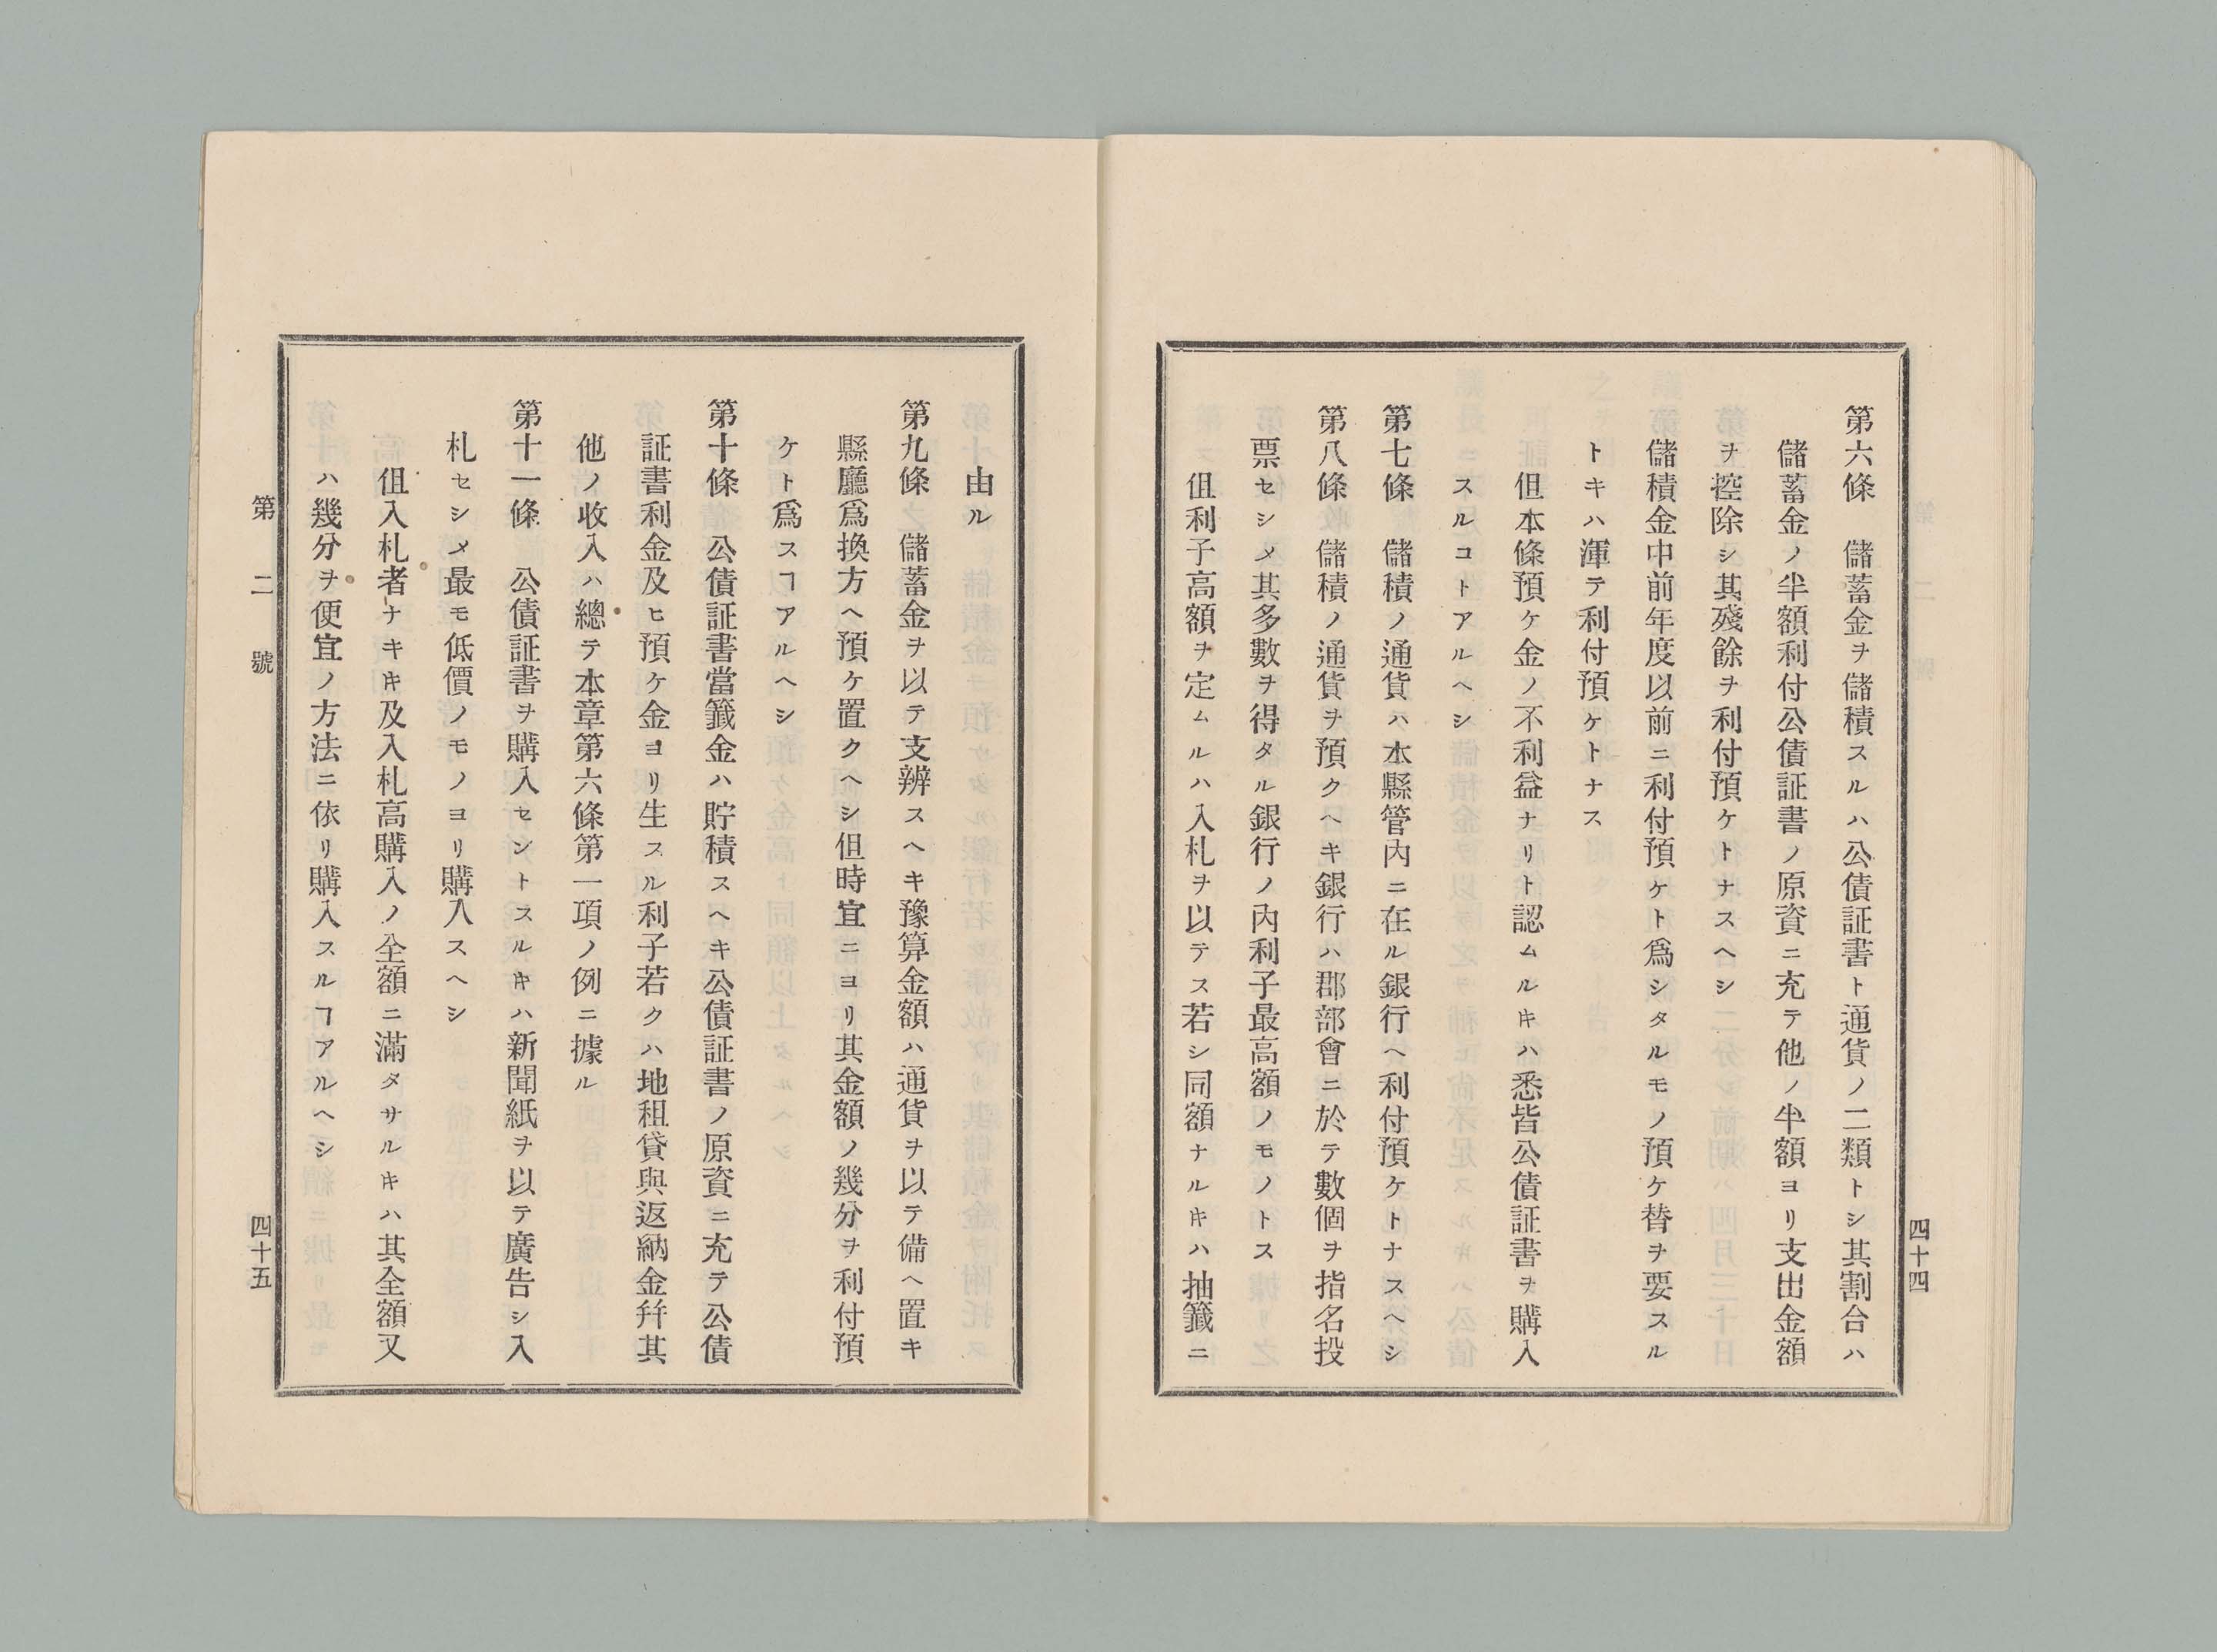 第六條　儲蓄金ヲ儲積スルハ公債証書ト通貨ノ二類トシ其割合ハ
儲蓄金ノ半額利付公債証書ノ原資ニ充テ他ノ半額ヨリ支出金額
ヲ控除シ其殘餘ヲ利付預ケトナスヘシ
儲積金中前年度以前ニ利付預ケト爲シタルモノ預ケ替ヲ要スル
トキハ渾テ利付預ケトナス
但本條預ケ金ノ不利益ナリト認ムルキハ悉皆公債証書ヲ購入
スルコトアルヘシ
第七條　儲積ノ通貨ハ本縣管内ニ在ル銀行ヘ利付預ケトナスヘシ
第八條　儲積ノ通貨ヲ預クヘキ銀行ハ郡部會ニ於テ數個ヲ指名投
票セシメ其多數ヲ得タル銀行ノ内利子最高額ノモノトス
但利子高額ヲ定ムルハ入札ヲ以テス若シ同額ナルキハ抽籤ニ
四十四
由ル
第九條　儲蓄金ヲ以テ支辨スヘキ豫算金額ハ通貨ヲ以テ備ヘ置キ
縣廳爲換方ヘ預ケ置クヘシ但時宜ニヨリ其金額ノ幾分ヲ利付預
ケト爲スヿアルヘシ
第十條　公債証書當籤金ハ貯積スヘキ公債証書ノ原資ニ充テ公債
証書利金及ヒ預ケ金ヨリ生スル利子若クハ地租貸與返納金幷其
他ノ收入ハ總テ本章第六條第一項ノ例ニ據ル
第十一條　公債証書ヲ購入セントスルキハ新聞紙ヲ以テ廣告シ入
札セシメ最モ低價ノモノヨリ購入スヘシ
但入札者ナキキ及入札高購入ノ全額ニ滿タサルキハ其全額又
ハ幾分ヲ便宜ノ方法ニ依リ購入スルヿアルヘシ
第二號
四十五